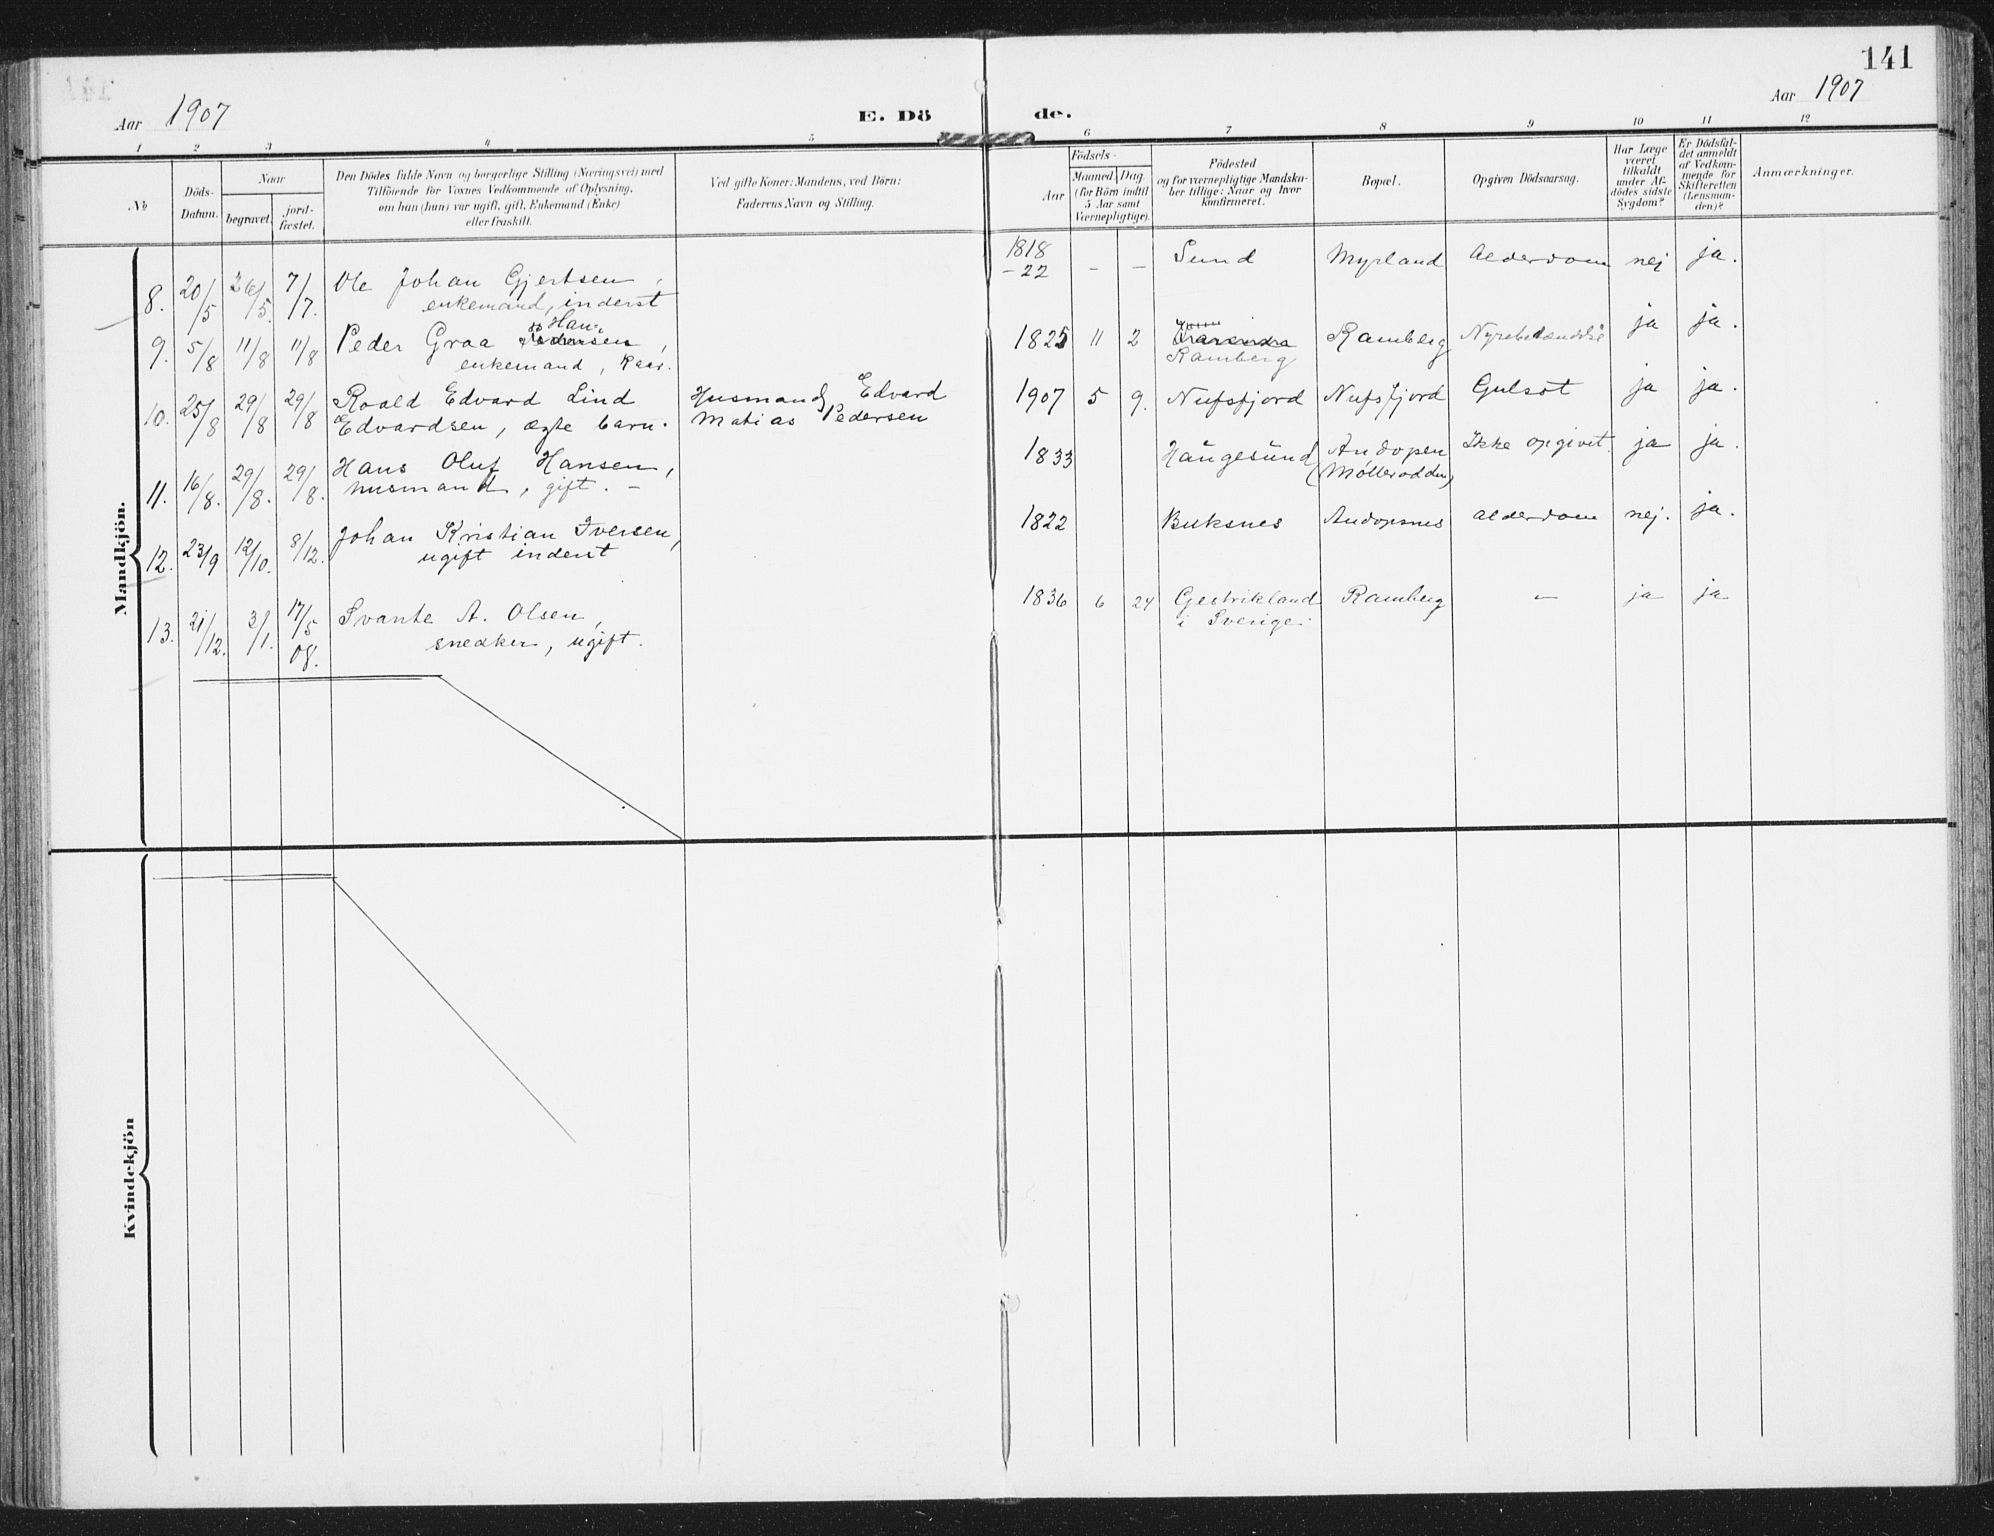 141
Aar 1907
E. Dö de.
Aar 1907
1 2 3 4 5 6 7 8 9 10 11 12
No
Döds-
Datum.
Naar
begravet.
jord-
fæstet.
Den Dödes fulde Navn og borgerlige Stilling (Næringsvei) med
Tilföiende for Voxnes Vedkommende af Oplysning,
om han (hun) var ugift, gift, Enkemand (Enke)
eller fraskilt.
Ved gifte Koner: Mandens, ved Börn:
Faderens Navn og Stilling.
Födsels-
Aar
Maaned Dag.
(for Börn indtil
5 Aar samt
Værnepligtige).
Födested
og for værnepligtige Mandska-
ber tillige: Naar og hvor
konfirmeret.
Bopæl.
Opgiven Dödsaarsag.
Har Læge
været
tilkaldt
under Af-
dödes sidste
Sygdom?
Er Dödsfal-
det anmeldt
af Vedkom-
mende for
Skifteretten
(Lensman-
den)?
Anmærkninger.
Mandkjön.
8. 20/5 26/5. 7/7. Ole Johan Gjertsen,
enkemand, inderst
1818
-22 - - Sund Myrland Alderdom nej ja.
9. 5/8 11/8 11/8 Peder Graa Han
enkemand,
1825 11 2 Ramberg Ramberg ja ja.
10. 25/8 29/8 29/8 Roald Edvard Lind
Edvardsen, ægte barn.
Husmand Edvard
Matias Pedersen
1907 5 9. Nufsfjord Nufsfjord Gulsot ja ja.
11. 16/8. 29/8. 29/8. Hans Oluf Hansen,
husmand, gift. -
1833 Haugesund Andopen
(Möllerodden) Ikke opgivet. ja ja.
12. 23/9 12/10. 8/12. Johan Kristian Iversen,
ugift inderst
1822 Buksnes Andopsnes Alderdom nej. ja.
13. 21/12. 3/1. 17/5
08. Svante A. Olsen,
snedker, ugift.
1836 6 24 Gestrikland
i Sverige. Ramberg - ja ja
Kvindekjön